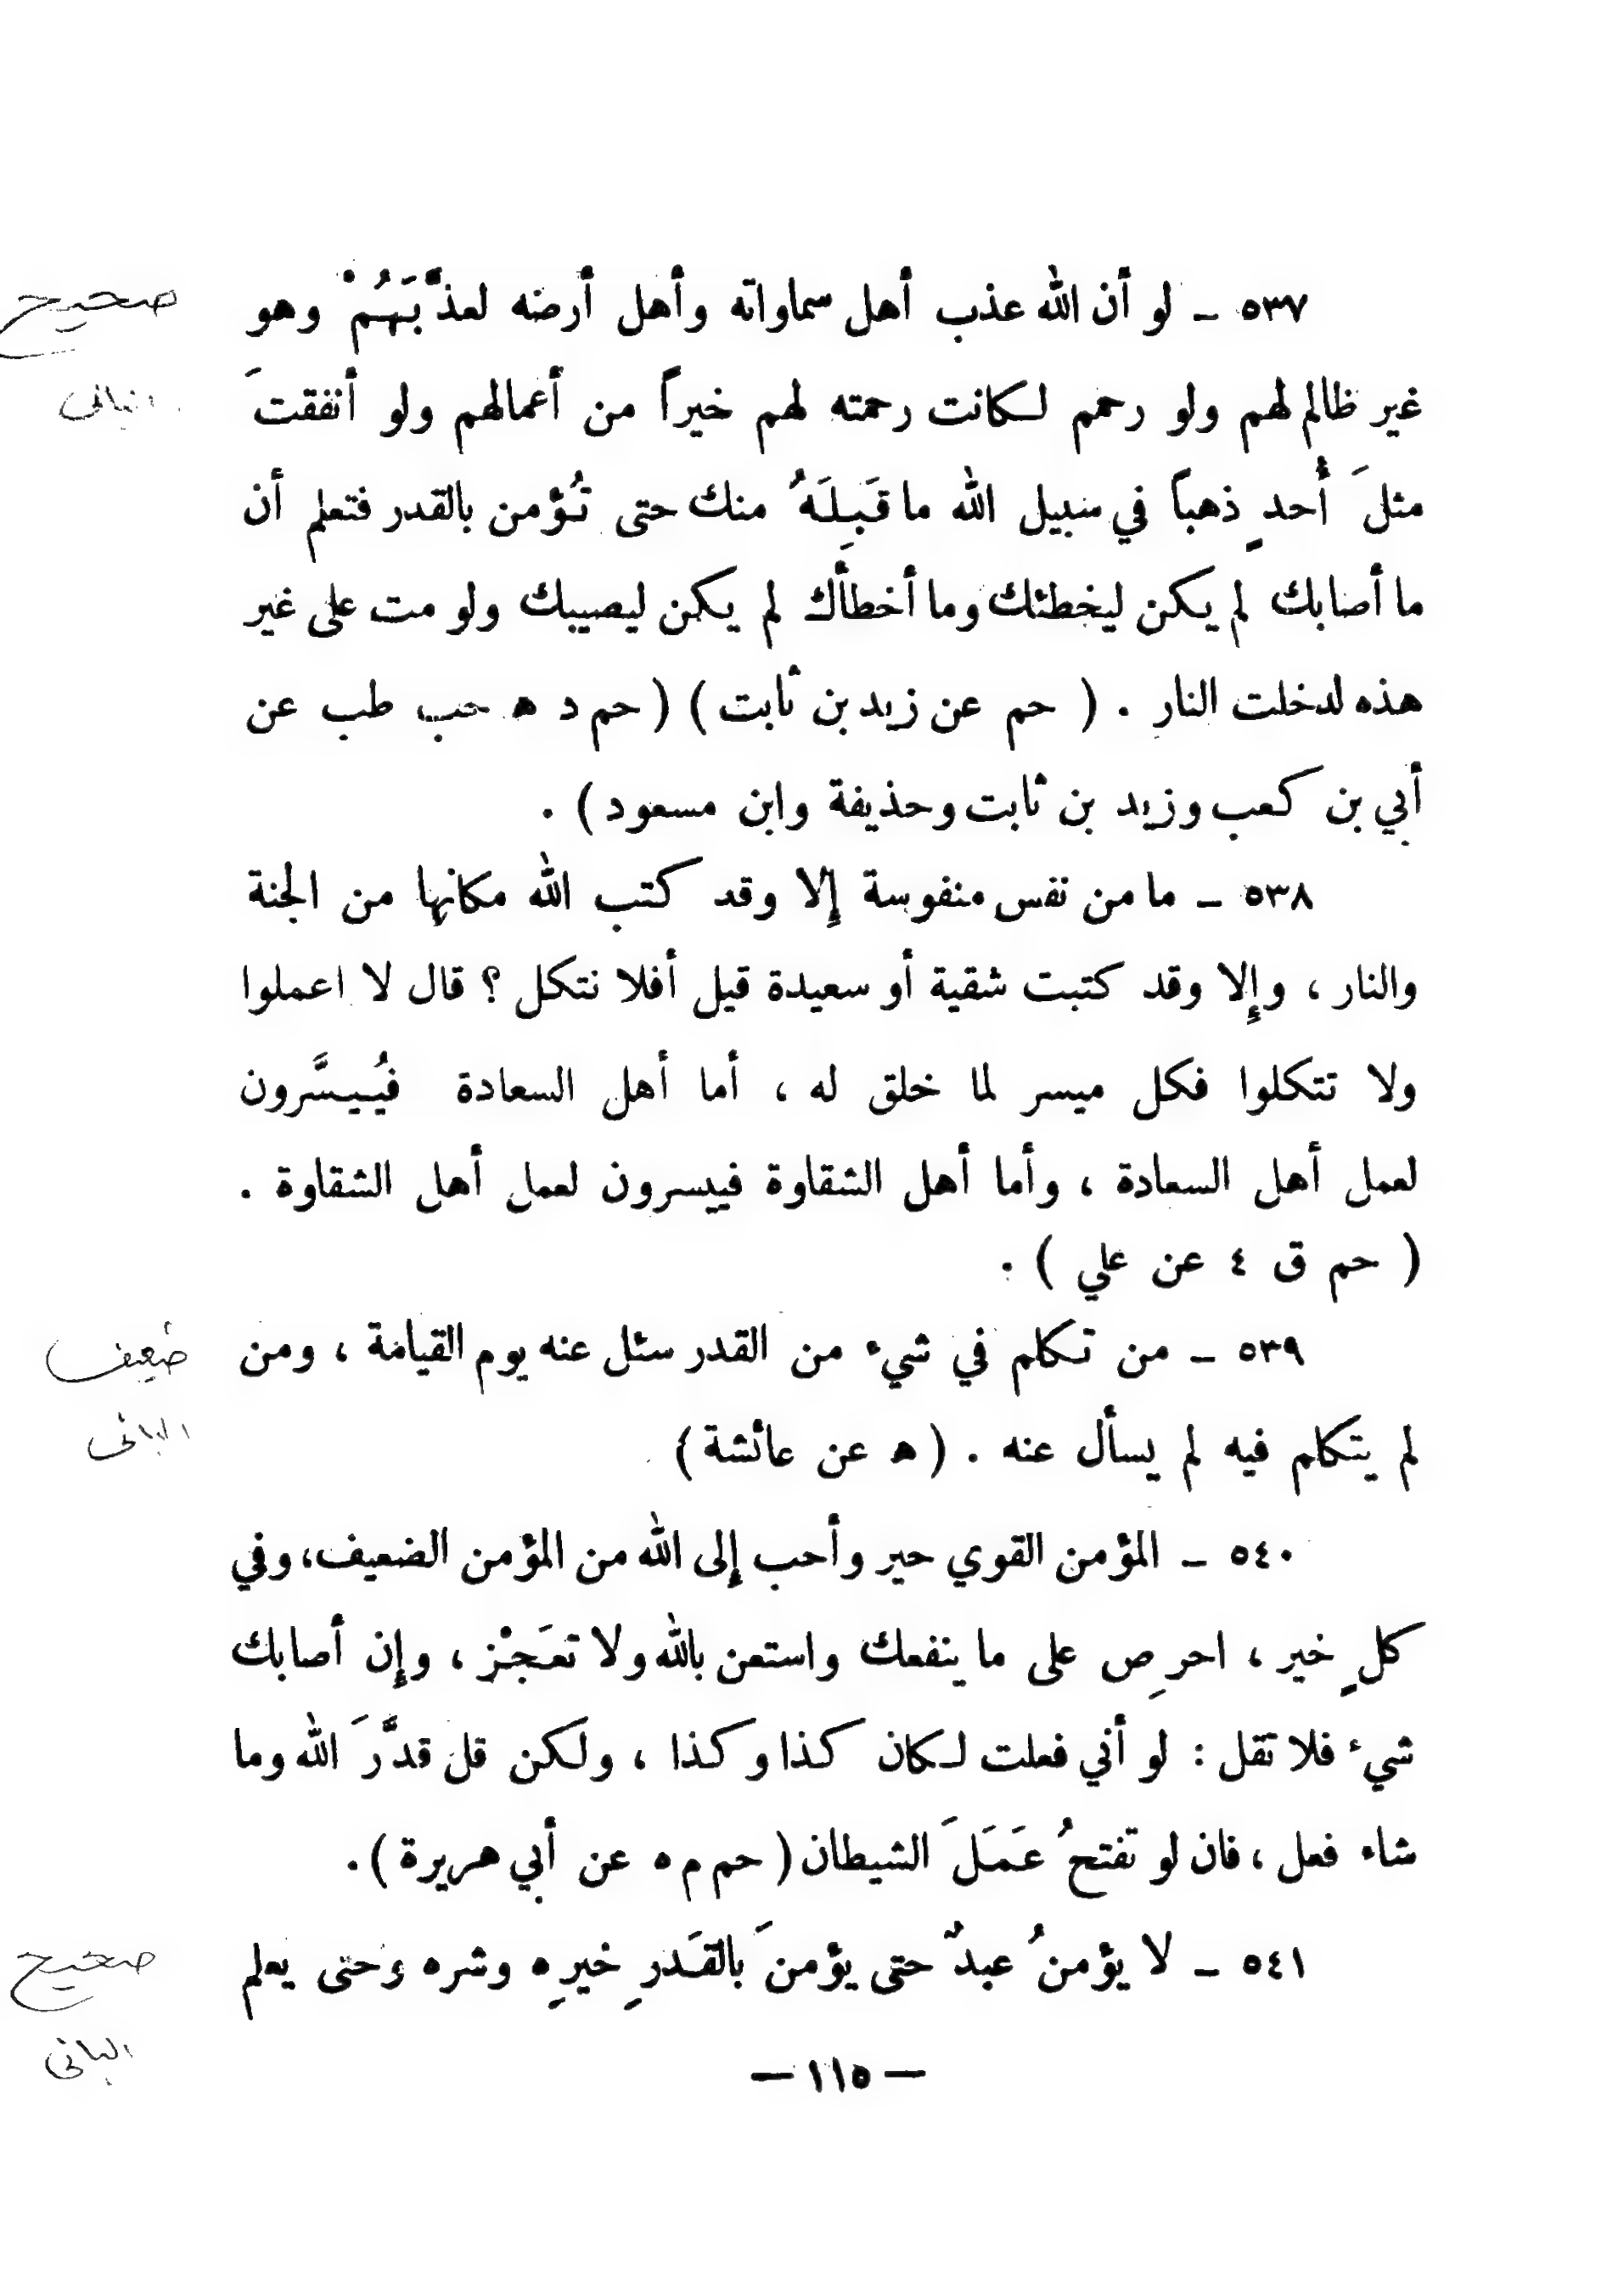 ٥٣٧ ـ لو أن الله عذب أهل سماواته وأهل أرضه لعذَّبَهُمْ وهو
صحيح
غير ظالم لهم ولو رحمهم لكانت رحمته لهم خيراً من أعمالهم ولو أنفقتَ
الباني
مثلَ أُحدٍ ذهباً في سبيل الله ما قَبِلَهُ منك حتى تُؤمن بالقدر فتعلم أن
ما أصابك لم يكن ليخطئك وما أخطأك لم يكن ليصيبك ولو مت على غير
هذه لدخلت النار . ( حم عن زيد بن ثابت ) ( حم د ه حب طب عن
أبي بن كعب وزيد بن ثابت وحذيفة وابن مسعود ) .
٥٣٨ ـ ما من نفس منفوسة إِلا وقد كتب الله مكانها من الجنة
والنار ، وإِلا وقد كتبت شقية أو سعيدة قيل أفلا نتكل ؟ قال لا اعملوا
ولا تتكلوا فكل ميسر لما خلق له ، أما أهل السعادة فيُيسَّرون
لعمل أهل السعادة ، وأما أهل الشقاوة فييسرون لعمل أهل الشقاوة .
( حم ق ٤ عن علي ) .
٥٣٩ ـ من تكلم في شيء من القدر سئل عنه يوم القيامة ، ومن
ضعيف
لم يتكلم فيه لم يسأل عنه . ( ه عن عائشة )
الباني
٥٤٠ ـ المؤمن القوي خير وأحب إِلى الله من المؤمن الضعيف، وفي
كلٍ خير ، احرِص على ما ينفعك واستعن بالله ولا تعَجْز ، وإِن أصابك
شيء فلا تقل : لو أني فعلت لكان كذا وكذا ، ولكن قل قدَّرَ الله وما
شاء فعل ، فان لو تفتحُ عَمَلَ الشيطان ( حم م ه عن أبي هريرة ) .
٥٤١ ـ لا يؤمنُ عبدٌ حتى يؤمنَ بالقَدرِ خيرِه وشره وحتى يعلم
صحيح
الباني
— ١١٥ —